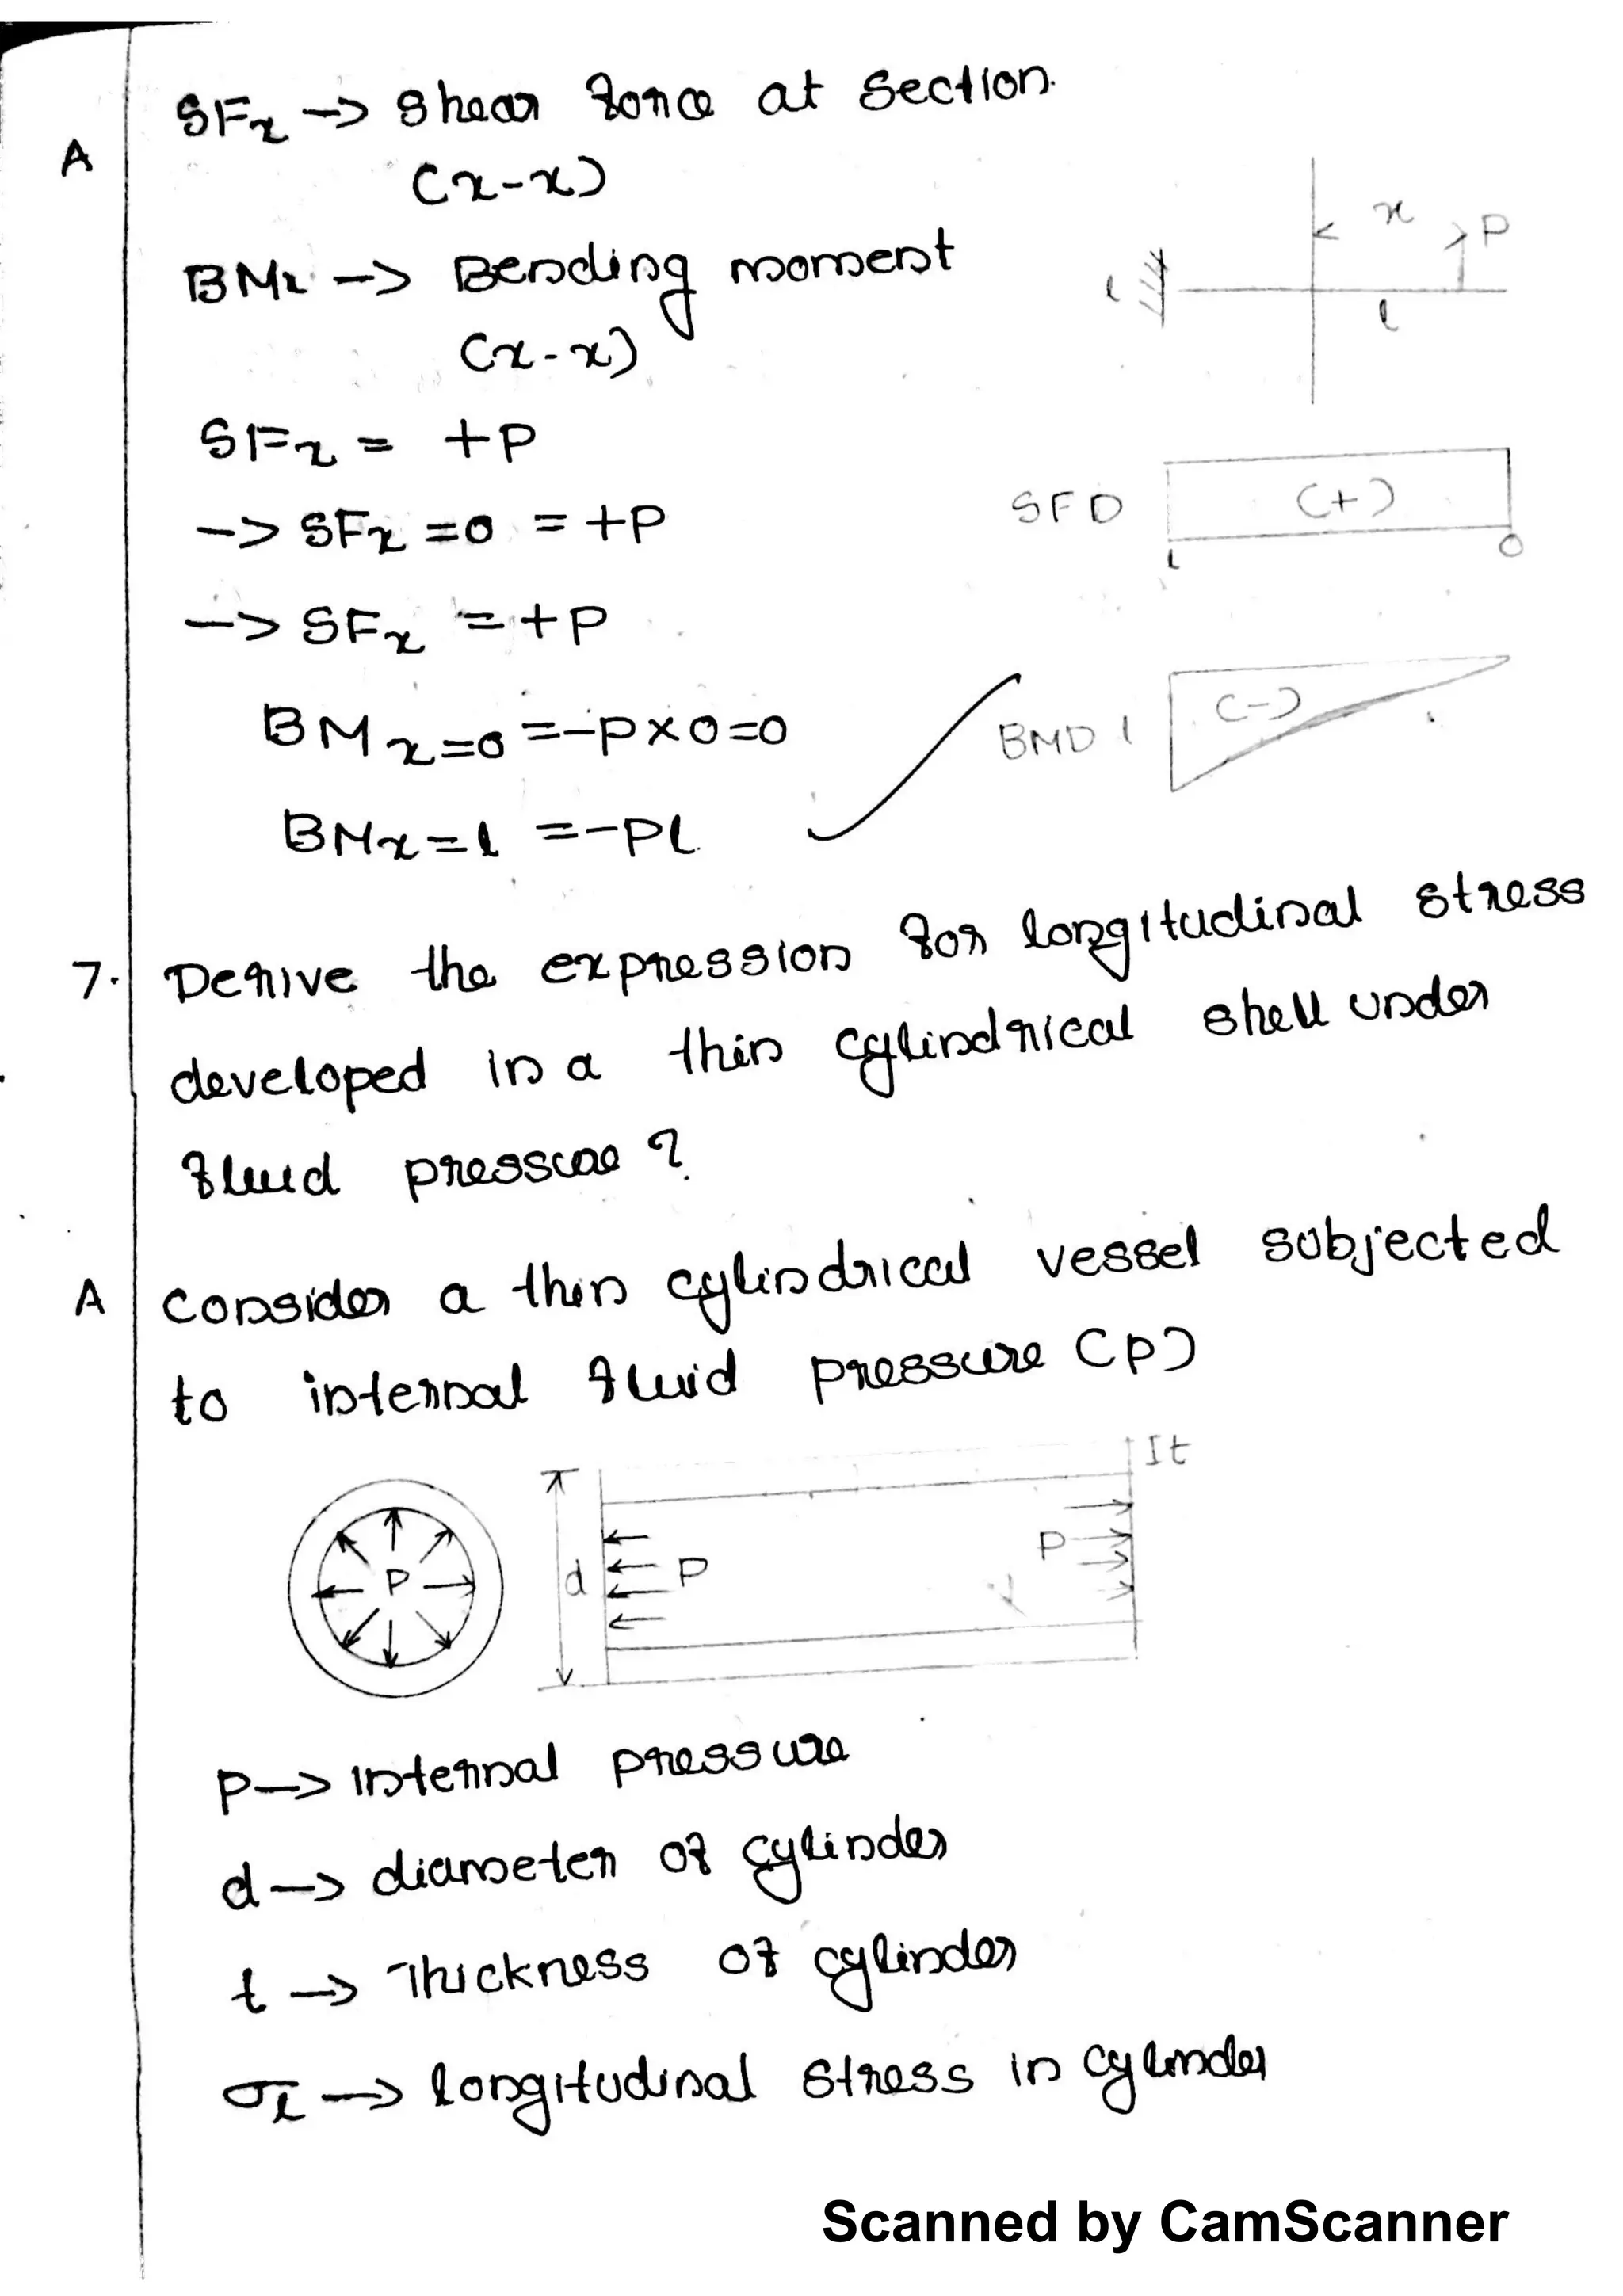 SFx -> Shear force at section.
A
(x-x)
BMx -> Bending moment
(x-x)
x
P
l
l
SFx = +P
-> SFx =0 = +P
SFD
(+)
l
0
-> SFx =+P
BM x=0 =-P×0=0
BMD l
(-)
BMx=l =-Pl
7. Derive the expression for longitudinal stress
developed in a thin cylindrical shell under
fluid pressure?
A Consider a thin cylindrical vessel subjected
to internal fluid pressure (P)
It
P
d
P
P
P-> Internal pressure
d-> diameter of cylinder
t -> Thickness of cylinder
σl -> longitudinal stress in cylinder
Scanned by CamScanner